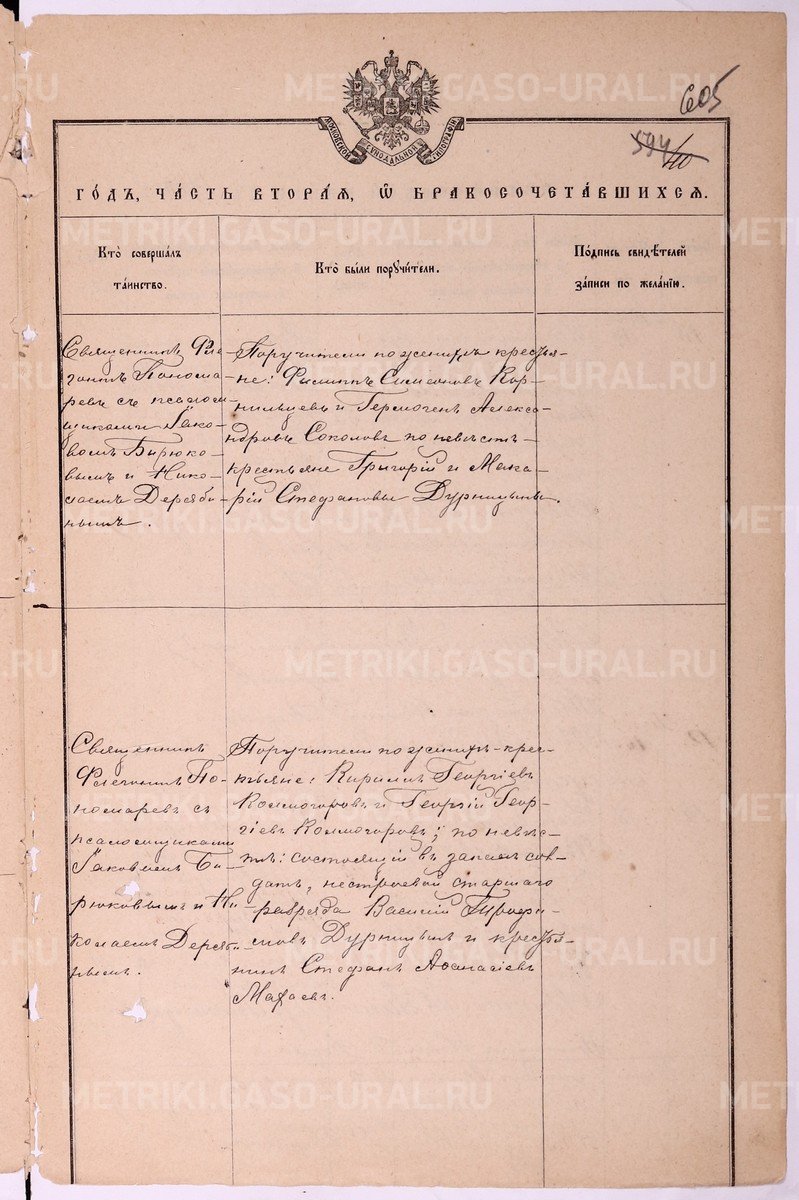 605
594/40
МОСКОВСКОЙ СУНОДАЛЬНОЙ ТИПОГРАФІИ
ГО́ДЪ, ЧА́СТЬ ВТОРА́Я, Ѡ҆ БРАКОСОЧЕТА́ВШИХСЯ.
Кто̀ соверша́лъ
та́инство.
Кто̀ бы́ли поручи́тели.
По́дпись свидѣ́телей
за́писи по жела́нїю.
Священникъ Фле-
гонтъ Понома-
ревъ съ псалом-
щиками Іако-
вомъ Бирюко-
вымъ и Нико-
лаемъ Дерябы-
нымъ.
Поручители по женихѣ кресть-
яне: Филиппъ Симеоновъ Кор-
нильцевъ и Гермогенъ Алекса-
ндровъ Соколовъ по невѣстѣ-
крестьяне Григорій и Мака-
рій Стефановы Дурницыны.
Священникъ
Флегонтъ По-
номаревъ съ
псаломщиками
Іаковомъ Би-
рюковымъ и Ни-
колаемъ Деряб-
нымъ.
Поручители по женихѣ - крес-
тьяне: Кириллъ Георгіевъ
Колмогоровъ и Георгій Геор-
гіевъ Колмогоровъ; по невѣс-
тѣ: состоящій въ запасѣ сол-
датъ, нестроевой старшаго
разряда Василій
Дурницынъ и кресть-
нинъ Стефанъ Аѳанасіевъ
METRIKI.GASO-URAL.RU